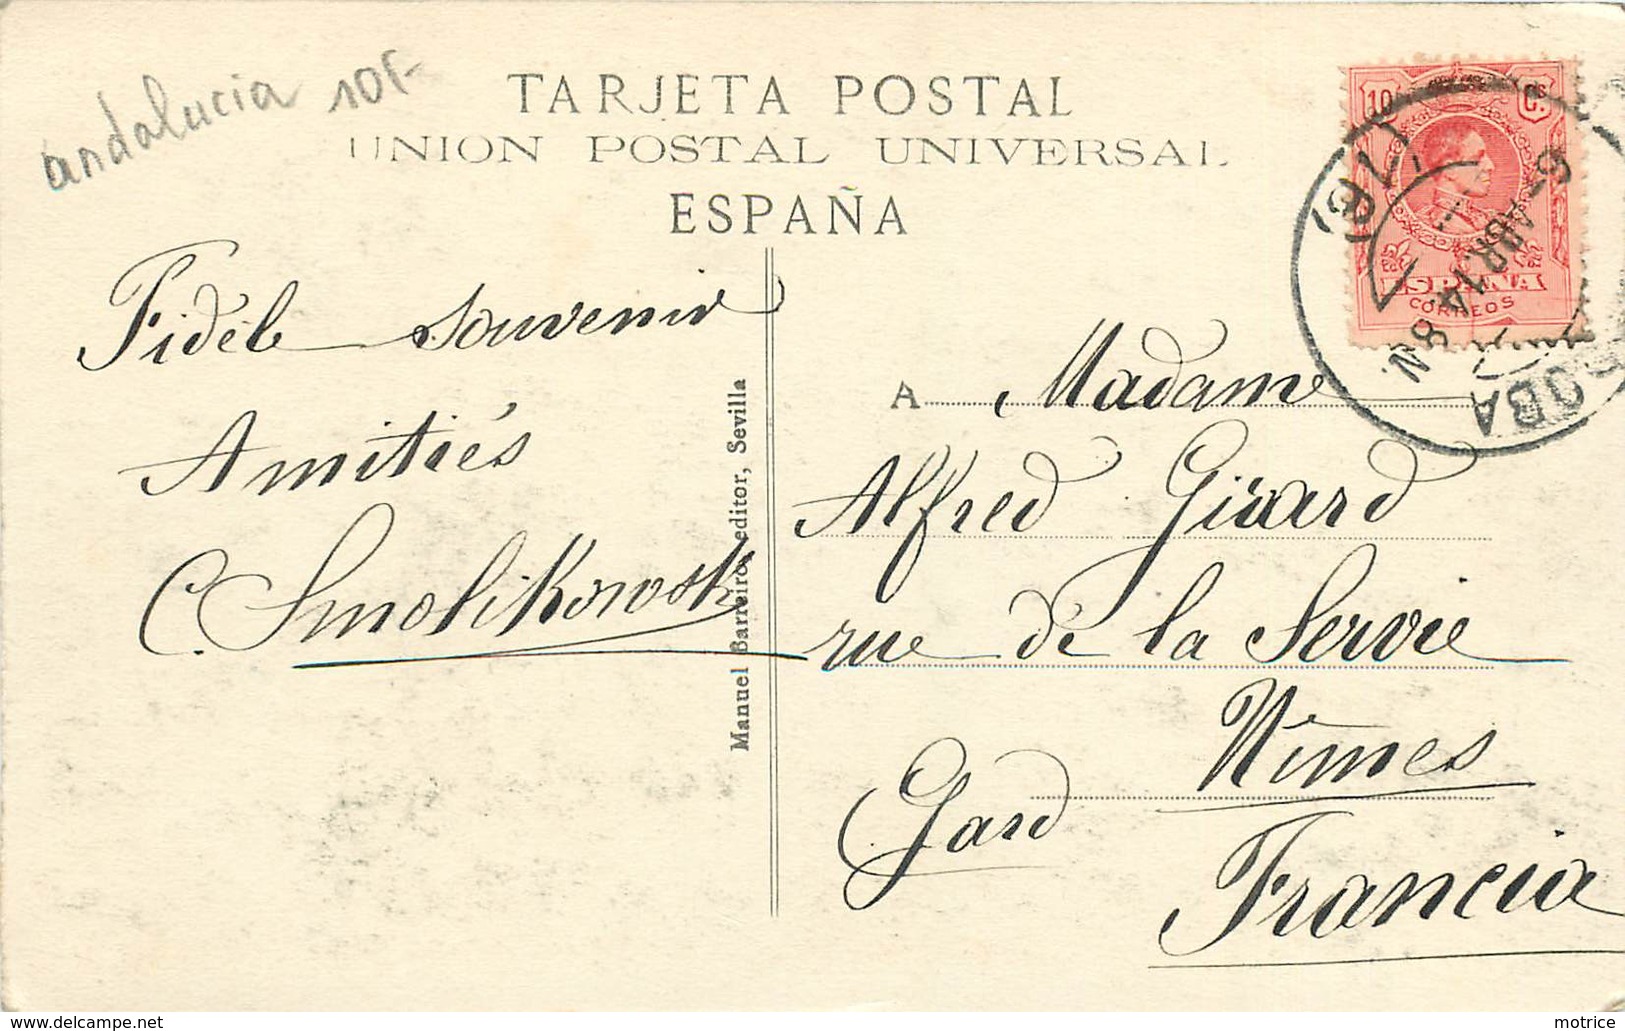 andalucia 10F-
TARJETA POSTAL
UNION POSTAL UNIVERSAL
ESPAÑA
10 Cs.
ESPAÑA
CORREOS
6-ABR.14. 8N.
OBA
Fidèle souvenir
Amitiés
C. Smolikowski
Manuel Barreiro, editor, Sevilla
A Madame
Alfred Girard
rue de la Servie
Nîmes
Gard
Francia
delcampe.net
motrice